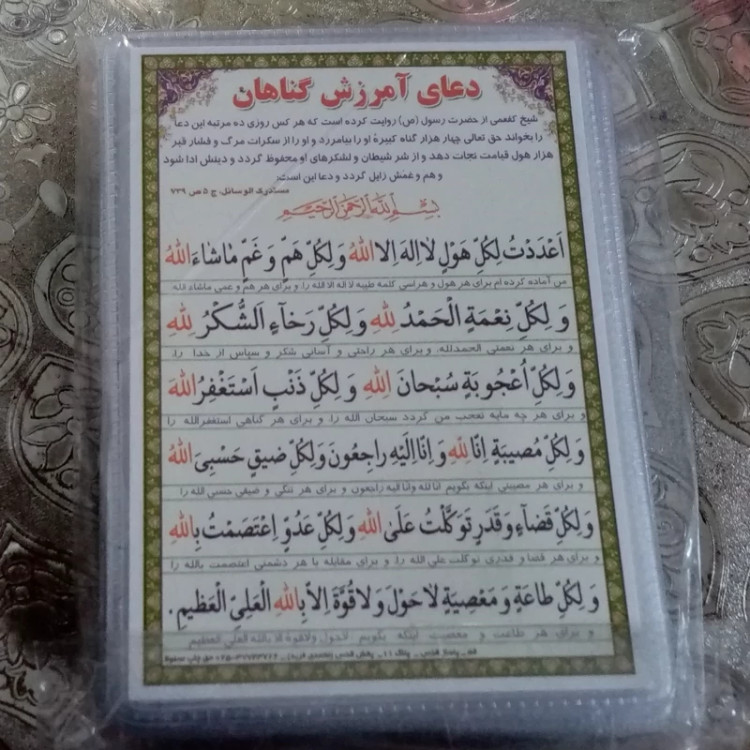 دعای آمرزش گناهان
شیخ کفعمی از حضرت رسول (ص) روایت کرده است که هر کس روزی ده مرتبه این دعا
را بخواند حق تعالی چهار هزار گناه کبیره او را بیامرزد و او را از سکرات مرگ و فشار قبر
هزار هول قیامت نجات دهد و از شر شیطان و لشکرهای او محفوظ گردد و دینش ادا شود
و هم و غمش زایل گردد و دعا این است:
مستدرک الوسائل، ج ۵ ص ۷۳۹
بِسْمِ اللهِ الرَّحْمنِ الرَّحیمِ
اَعْدَدْتُ لِکُلِّ هَوْلٍ لا اِلهَ اِلاَّ اللهُ وَ لِکُلِّ هَمٍّ وَ غَمٍّ ماشاءَ اللهُ
من آماده کرده ام برای هر هول و هراسی کلمه طیبه لا اله الا الله را، و برای هر هم و غمی ماشاء الله
وَ لِکُلِّ نِعْمَةٍ الْحَمْدُ لِلّهِ وَ لِکُلِّ رَخآءٍ اَلشُّکْرُ لِلّهِ
و برای هر نعمتی الحمدلله، و برای هر راحتی و آسانی شکر و سپاس از خدا را،
وَ لِکُلِّ اُعْجُوبَةٍ سُبْحانَ اللهِ وَ لِکُلِّ ذَنْبٍ اَسْتَغْفِرُ اللهَ
و برای هر چه مایه تعجب من گردد سبحان الله را، و برای هر گناهی استغفرالله را
وَ لِکُلِّ مُصیبَةٍ اِنّا لِلّهِ وَ اِنّا اِلَیْهِ راجِعُونَ وَ لِکُلِّ ضیقٍ حَسْبِیَ اللهُ
و برای هر مصیبتی اینکه بگویم انا لله وانا الیه راجعون و برای هر تنگی و ضیقی حسبی الله را
وَ لِکُلِّ قَضآءٍ وَ قَدَرٍ تَوَکَّلْتُ عَلَی اللهِ وَ لِکُلِّ عَدُوٍّ اِعْتَصَمْتُ بِاللهِ
و برای هر قضا و قدری توکلت علی الله را، و برای مقابله با هر دشمنی اعتصمت بالله را
وَ لِکُلِّ طاعَةٍ وَ مَعْصِیَةٍ لا حَوْلَ وَ لا قُوَّةَ اِلاّ بِاللهِ الْعَلِیِّ الْعَظیمِ.
و برای هر طاعت و معصیت اینکه بگویم لاحول ولاقوة الا بالله العلی العظیم
قم _ پاساژ قدس _ پلاک ۱۱ _ پخش قدس